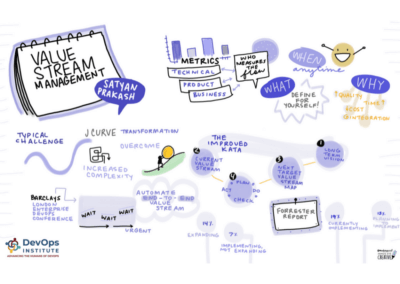 VALUE
STREAM
MANAGEMENT
SATYAN
PRAKASH
METRICS
TECHNICAL
PRODUCT
BUSINESS
WHO
MEASURES
THE
flow
WHEN
anytime
WHAT
DEFINE
FOR
YOURSELF!
WHY
QUALITY
TIME
TYPICAL
CHALLENGE
J CURVE TRANSFORMATION
OVERCOME
INCREASED
COMPLEXITY
BARCLAYS
LONDON
ENTERPRISE
DEVOPS
CONFERENCE
WAIT WAIT WAIT
URGENT
AUTOMATE
END-TO-END
VALUE
STREAM
THE IMPROVED
KATA
1 LONG
TERM
VISION
2
CURRENT
VALUE
STREAM
3
NEXT
TARGET
VALUE
STREAM
MAP
4 PLAN
ACT DO
CHECK
FORRESTER
REPORT
19%
CURRENTLY
IMPLEMENTING
EXPANDING
IMPLEMENTING,
NOT EXPANDING
DevOps
INSTITUTE
ADVANCING THE HUMANS OF DEVOPS